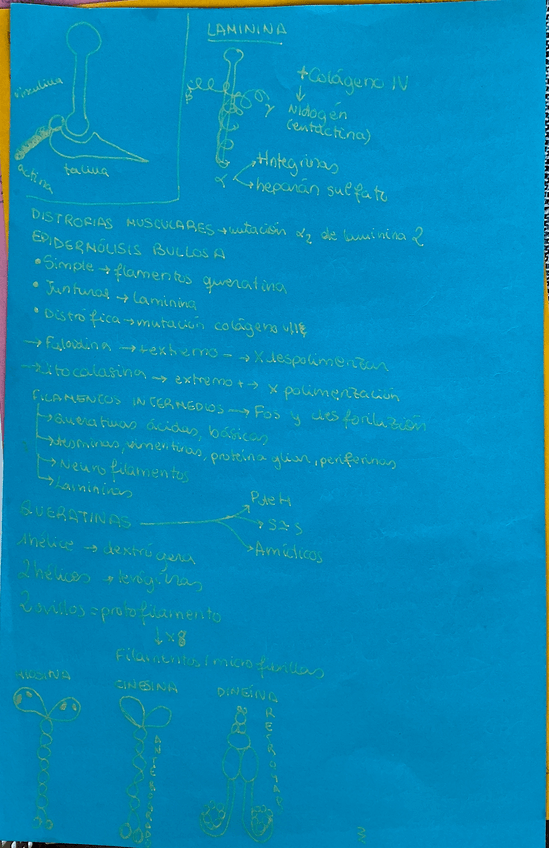 LAMININA
vinculina
actina
talina
β
γ
α
+ Colágeno IV
↓
Nidogén
(entactina)
→ Integrinas
→ heparán sulfato
DISTROFIAS MUSCULARES → mutación α2 de laminina 2
EPIDERMÓLISIS BULLOSA
• Simple → filamentos queratina
• Junturas → laminina
• Distrófica → mutación colágeno VII
→ Faloidina → + extremo - → X despolimerizar
→ Citocalasina → extremo + → X polimerización
FILAMENTOS INTERMEDIOS → Fos y desforilación
→ Queratinas ácidas, básicas
→ desminas, vimentinas, proteína glial, periferinas
→ Neurofilamentos
→ Lamininas
QUERATINAS
→ Pte H
→ S-S
→ Amídicos
1 hélice → dextrógira
2 hélices → levógiras
2 ovillos = protofilamento
↓ x8
Filamentos / microfibrillas
MIOSINA
CINESINA
DINEÍNA